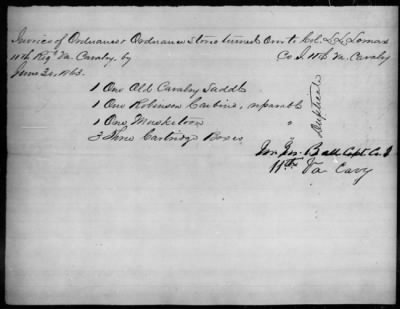 Invoice of Ordnance & Ordnance Stores turned Over to Col. L L Lomax
11th Regt Va. Cavalry. by Co I. 11th Va. Cavalry
June 20, 1863.
1 One Old Cavalry Saddle
1 One Robinson Carbine, reparable
1 One Musketoon "
3 Three Cartridge Boxes "
Duplicate
Ball Capt Co. I
11th Va Cavy